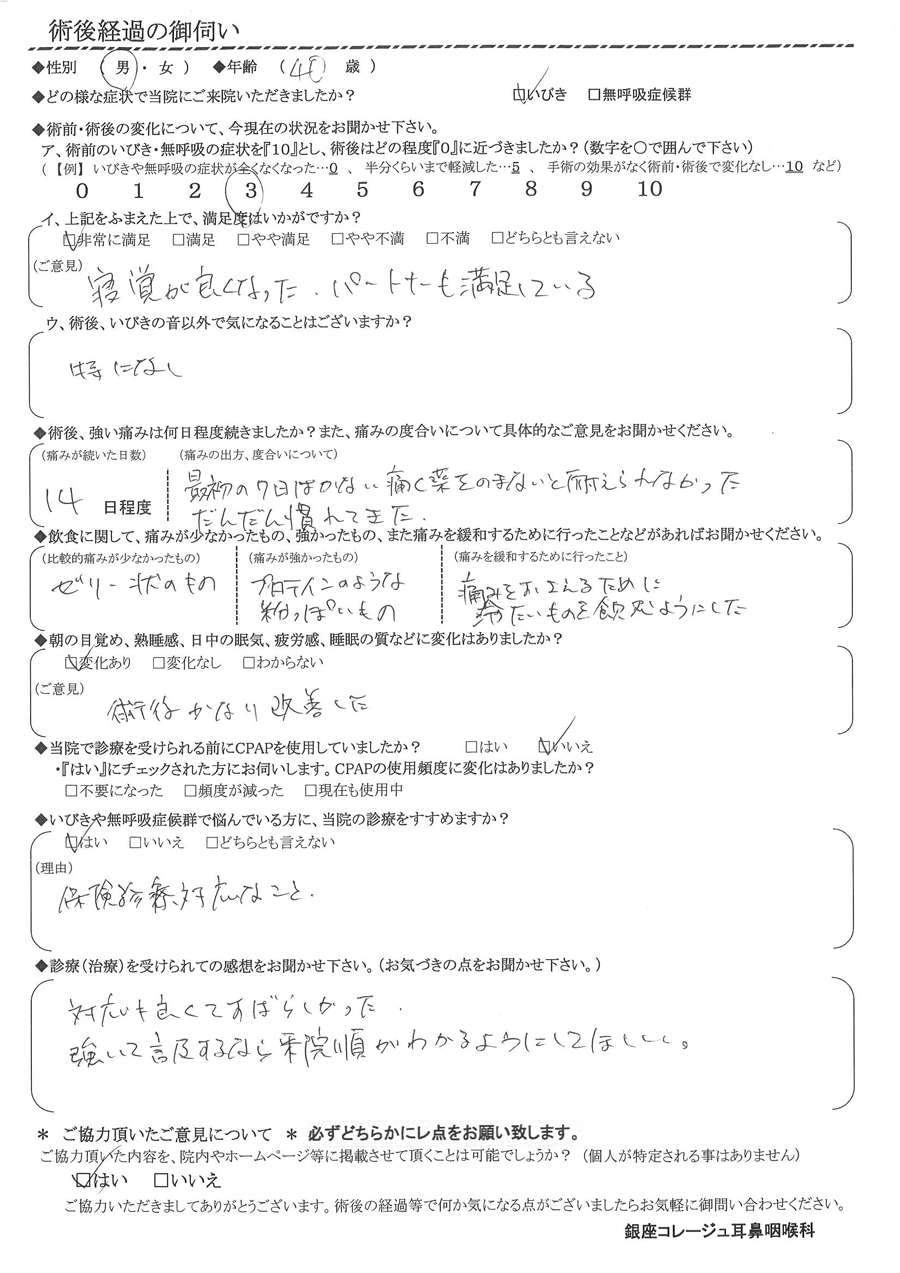 術後経過の御伺い
◆性別 （ 男 ・ 女 ） ◆年齢 （ 40 歳 ）
◆どの様な症状で当院にご来院いただきましたか？ ☑いびき □無呼吸症候群
◆術前・術後の変化について、今現在の状況をお聞かせ下さい。
ア、術前のいびき・無呼吸の症状を『10』とし、術後はどの程度『0』に近づきましたか？（数字を○で囲んで下さい）
（【例】 いびきや無呼吸の症状が全くなくなった…0 、 半分くらいまで軽減した…5 、 手術の効果がなく術前・術後で変化なし…10 など）
0 1 2 3 4 5 6 7 8 9 10
イ、上記をふまえた上で、満足度はいかがですか？
☑非常に満足 □満足 □やや満足 □やや不満 □不満 □どちらとも言えない
（ご意見）
寝覚が良くなった．パートナーも満足している
ウ、術後、いびきの音以外で気になることはございますか？
特になし
◆術後、強い痛みは何日程度続きましたか？また、痛みの度合いについて具体的なご意見をお聞かせください。
（痛みが続いた日数） （痛みの出方、度合いについて）
14 日程度
最初の7日はかない痛く薬をのまないと耐えられなかった
だんだん慣れてきた．
◆飲食に関して、痛みが少なかったもの、強かったもの、また痛みを緩和するために行ったことなどがあればお聞かせください。
（比較的痛みが少なかったもの） （痛みが強かったもの） （痛みを緩和するために行ったこと）
ゼリー状のもの
プロテインのような
粉っぽいもの
痛みをおさえるために
冷たいものを飲むようにした
◆朝の目覚め、熟睡感、日中の眠気、疲労感、睡眠の質などに変化はありましたか？
☑変化あり □変化なし □わからない
（ご意見）
術後かなり改善した
◆当院で診療を受けられる前にCPAPを使用していましたか？ □はい ☑いいえ
・『はい』にチェックされた方にお伺いします。CPAPの使用頻度に変化はありましたか？
□不要になった □頻度が減った □現在も使用中
◆いびきや無呼吸症候群で悩んでいる方に、当院の診療をすすめますか？
☑はい □いいえ □どちらとも言えない
（理由）
保険診療対応なこと．
◆診療（治療）を受けられての感想をお聞かせ下さい。（お気づきの点をお聞かせ下さい。）
対応も良くてすばらしかった．
強いて言及するなら来院順がわかるようにしてほしい。
＊ ご協力頂いたご意見について ＊ 必ずどちらかにレ点をお願い致します。
ご協力頂いた内容を、院内やホームページ等に掲載させて頂くことは可能でしょうか？（個人が特定される事はありません）
☑はい □いいえ
ご協力いただきましてありがとうございます。術後の経過等で何か気になる点がございましたらお気軽に御問い合わせください。
銀座コレージュ耳鼻咽喉科